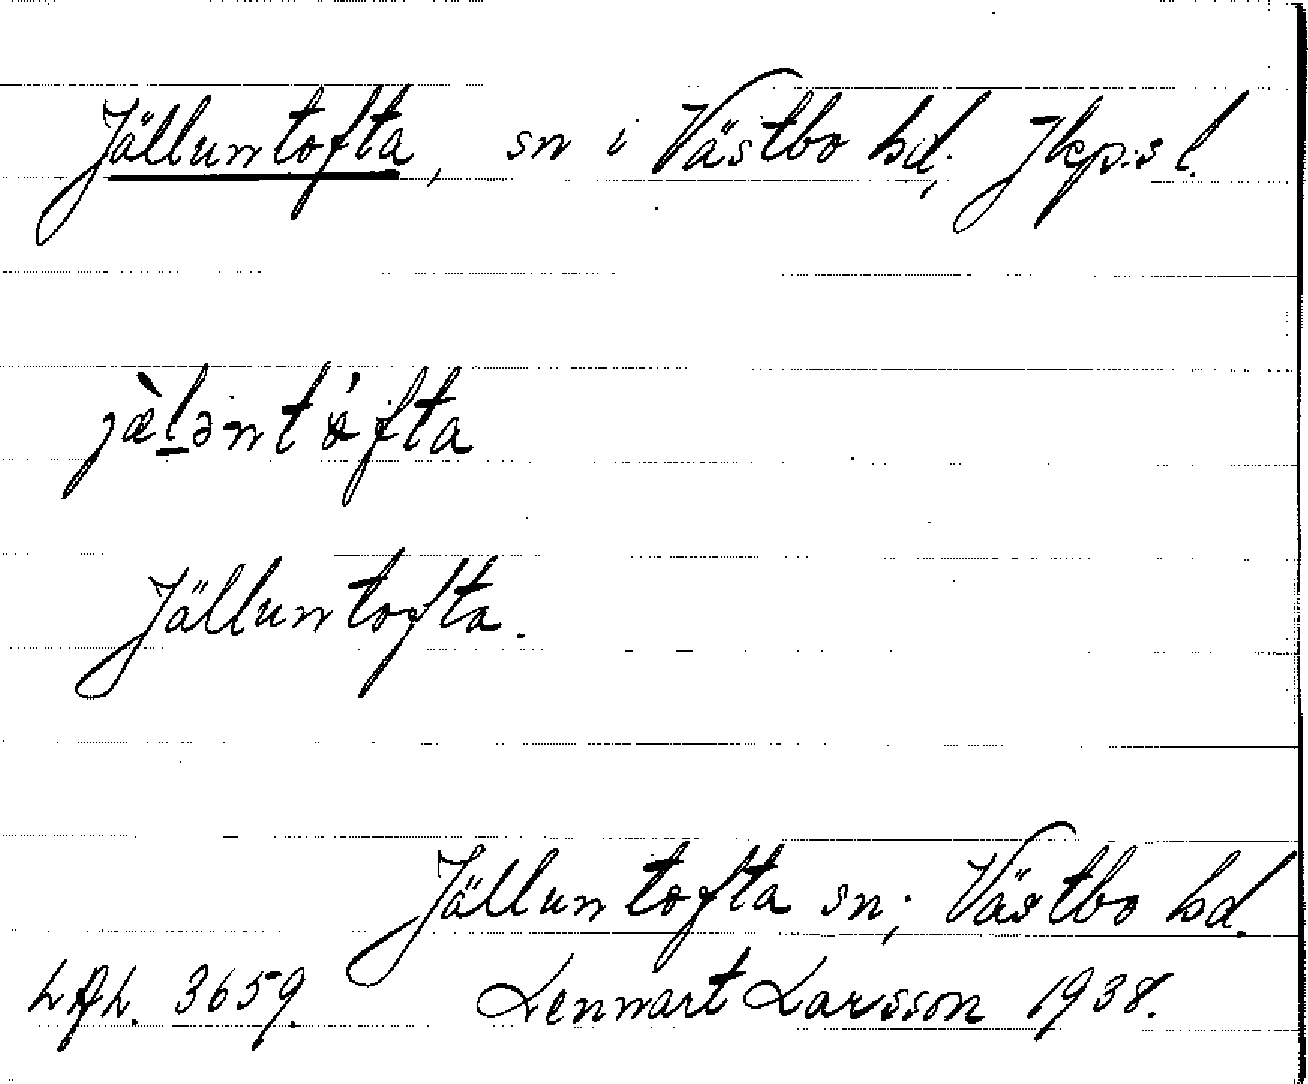 Jälluntofta, sn i Västbo hd, Jkp:s l.
jæ̀ḻəntáfta
Jälluntofta.
Jälluntofta sn; Västbo hd.
3659. Lennart Larsson 1938.